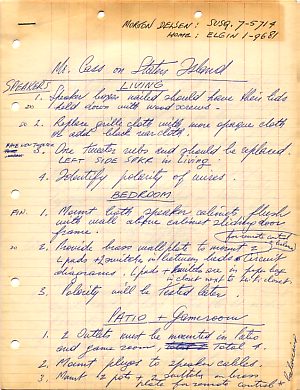 MORTEN DELSEN: SUSQ. 7-5714
HOME: ELGIN 1-9681
Mr. Cass on Staten Island
SPEAKERS
LIVING
1. Speaker boxes nailed should have their lids
held down with wood screws.
2. Replace grille cloth with more opaque cloth
or add black over cloth.
3. One tweeter rubs and should be replaced.
LEFT SIDE SPKR in living.
4. Identify polarity of wires.
BEDROOM
FIN. 1. Mount both speaker cabinets flush
with wall above cabinet sliding door
frame.
2. Provide brass wall plate to mount 2
Lpads + 2 switches in between beds
diagrams. Lpads + switches are in paper bag
in closet next to hifi closet.
3. Polarity will be tested later.
PATIO + Gameroom
1. 2 Outlets must be mounted in Patio
and game room Total 4.
2. Mount plugs to speaker cables.
3. Mount 2 pots + 2 outlets on brass
plate for remote control *